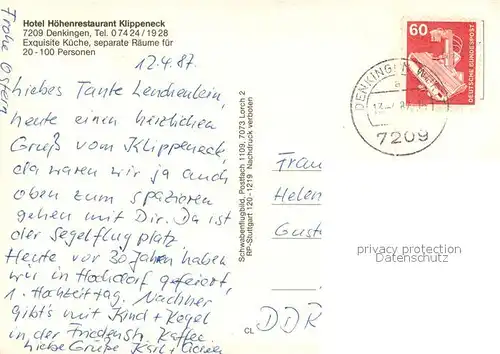 Hotel Höhenrestaurant Klippeneck
7209 Denkingen, Tel. 0 74 24 / 19 28
Exquisite Küche, separate Räume für
20 - 100 Personen
Frohe Ostern
12.4.87.
liebes Tante
heute einen herzlichen
Gruß vom Klippeneck,
da waren wir ja auch
oben zum spazieren
gehen mit Dir. Da ist
der Segelflugplatz
Heute vor 30 Jahren haben
wir in Hochdorf gefeiert,
1. Hochzeittag. Nachher
gibt's mit Kind + Kegel
in der Friedensstr. Kaffee.
liebe Grüße
Schwabenflugbild, Postfach 1109, 7073 Lorch 2
RP-Stuttgart 120 - 1219 Nachdruck verboten
60
DEUTSCHE BUNDESPOST
DENKINGEN
7209
Frau
Helen
Gust
DDR
privacy protection
Datenschutz